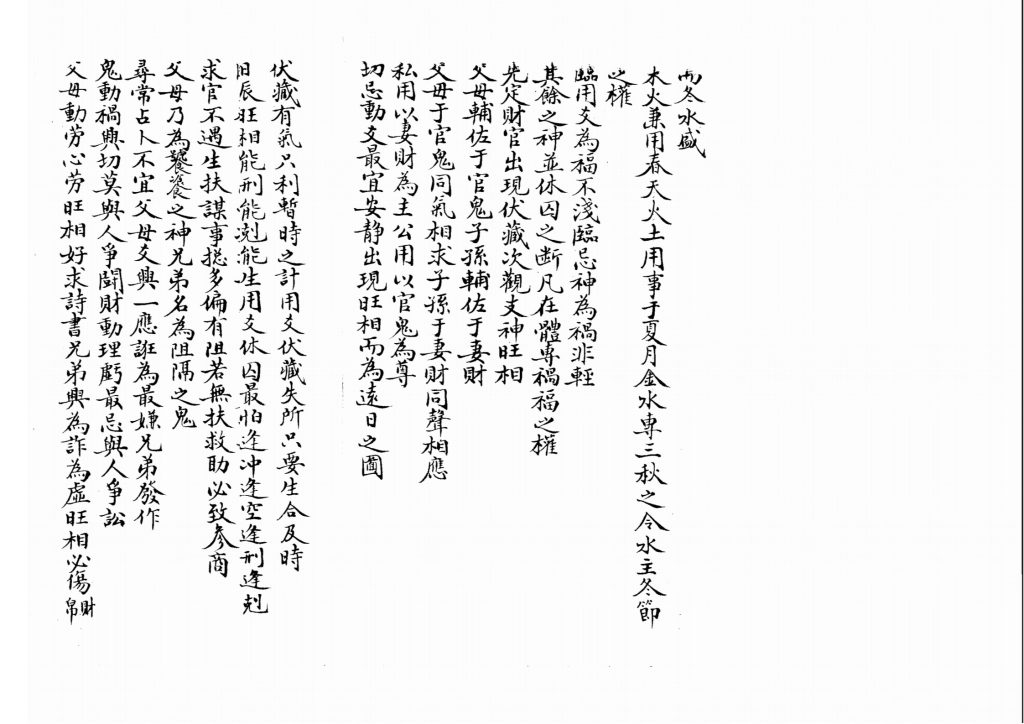 而冬水盛
木火兼用春天火土用事于夏月金水専三秋之令水主冬節
之權
臨用爻為福不淺臨忌神為禍非輕
其餘之神並休囚之断凡在體專禍福之權
先定財官出現伏藏次觀支神旺相
父母輔佐于官鬼子孫輔佐于妻財
父母于官鬼同氣相求子孫于妻財同聲相應
私用以妻財為主公用以官鬼為尊
切忌動爻最宜安静出現旺相而為遠日之圖
伏藏有氣只利暫時之計用爻伏藏失所只要生合及時
日辰旺相能刑能剋能生用爻休囚最怕逢冲逢空逢刑逢剋
求官不遇生扶謀事捴多偏有阻若無扶救助必致參商
父母乃為饕餮之神兄弟名為阻隔之鬼
尋常占卜不宜父母爻興一應誑為最嫌兄弟發作
鬼動禍興切莫與人爭鬪財動理虧最忌與人爭訟
父母動勞心勞旺相好求詩書兄弟興為詐為虛旺相必傷財帛